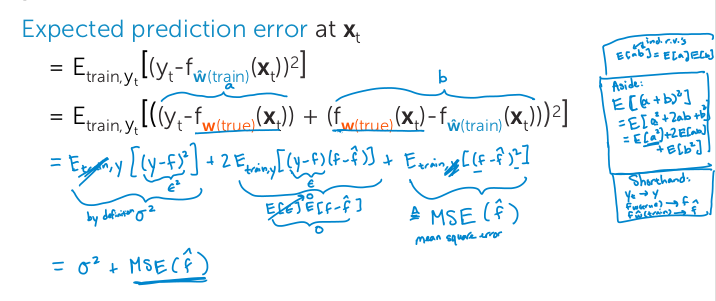 Expected prediction error at xₜ
= E_train,yₜ[(yₜ-f_ŵ(train)(xₜ))²]
a b
= E_train,yₜ[((yₜ-f_w(true)(xₜ)) + (f_w(true)(xₜ)-f_ŵ(train)(xₜ)))²]
= E_train,y[(y-f)²] + 2E_train,y[(y-f)(f-f̂)] + E_train,y[(f-f̂)²]
ε² ε
by definition σ² E[ε]E[f-f̂] ≜ MSE(f̂)
0
0 mean square error
= σ² + MSE(f̂)
ind. r.v.'s
E[ab] = E[a]E[b]
Aside:
E[(a+b)²]
= E[a²+2ab+b²]
= E[a²]+2E[ab]
+E[b²]
Shorthand:
yₜ → y
f_w(true) → f
f_ŵ(train) → f̂